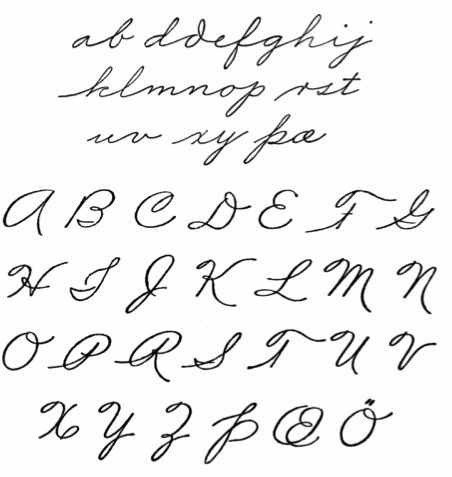 ab dðefghij
klmnop rst
uv xy þæ
A B C D E F G
H I J K L M N
O P R S T U V
X Y Z Þ Æ Ö